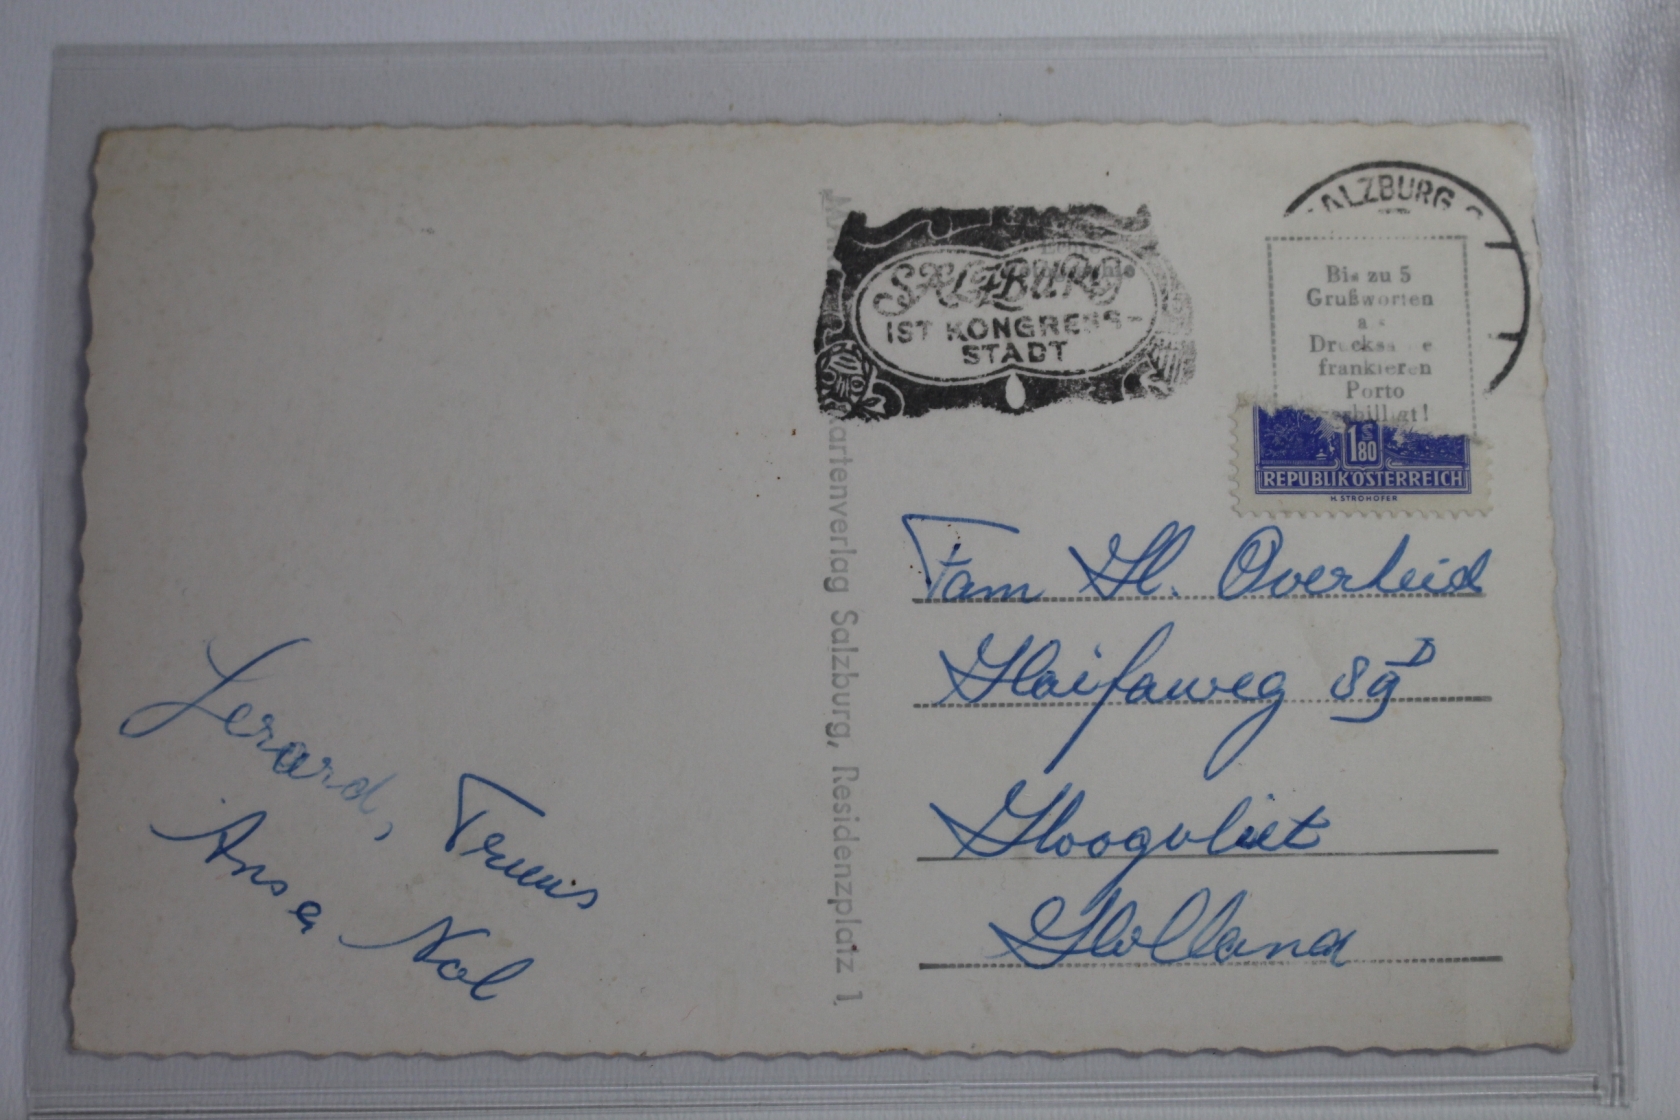 SALZBURG
IST KONGRESS-
STADT
ALZBURG 2
Bis zu 5
Grußworten
als
Drucksache
frankieren
Porto
verbilligt!
1 S 80
REPUBLIK ÖSTERREICH
H. STROHOFER
Kartenverlag Salzburg, Residenzplatz 1,
Fam H.
Haifaweg 89 D
Hoogvliet
Holland
Gerard, Truus
Ansa Nol